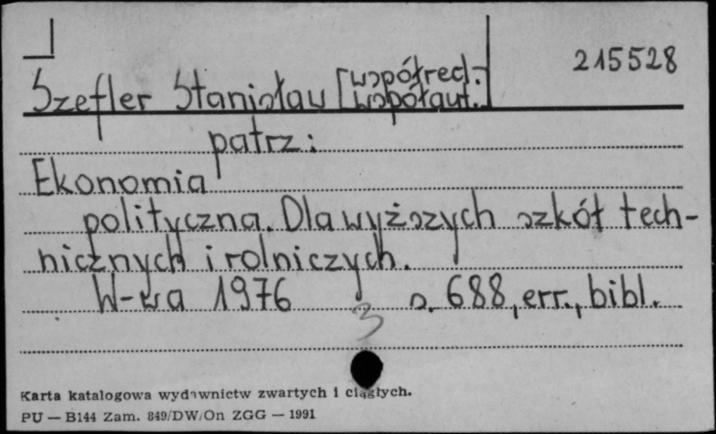 215528
Szefler Stanisław [współred.-
współaut.]
patrz:
Ekonomia
polityczna. Dla wyższych szkół tech-
nicznych i rolniczych.
W-wa 1976 s. 688, err., bibl.
3
Karta katalogowa wydawnictw zwartych i ciągłych.
PU — B144 Zam. 849/DW/On ZGG — 1991